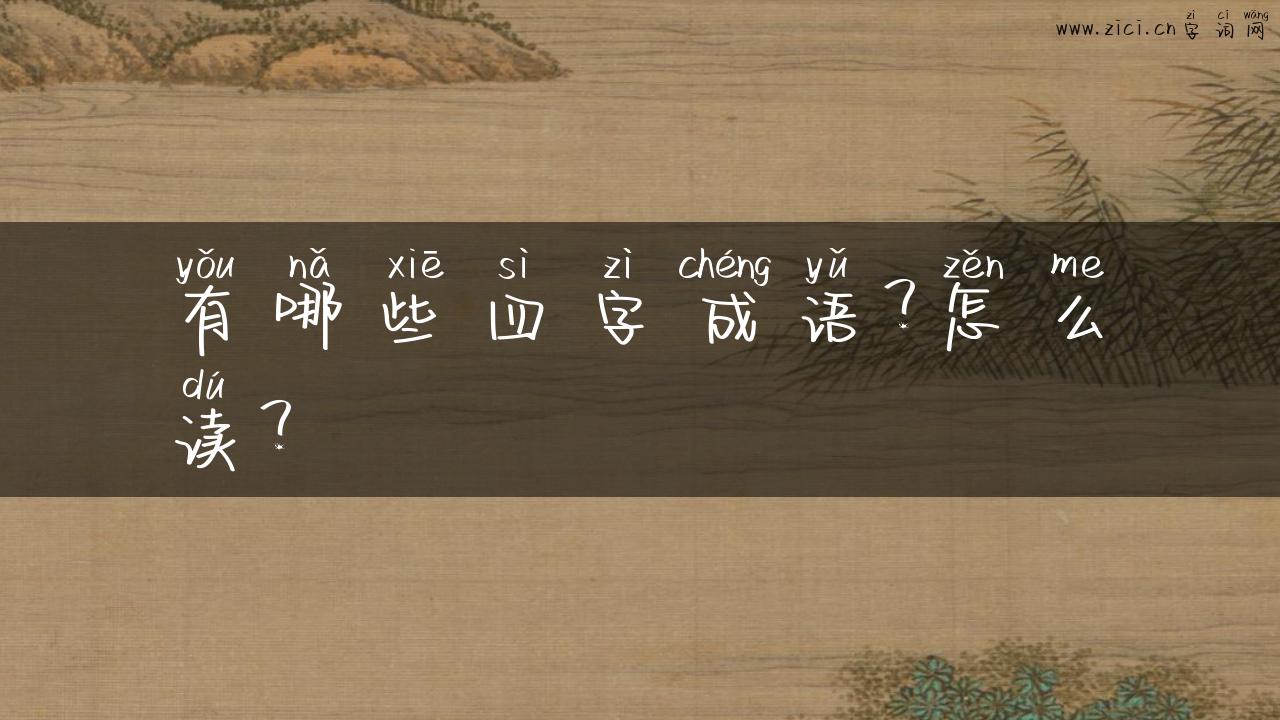 zì cí wǎng
www.zici.cn 字词网
yǒu nǎ xiē sì zì chéng yǔ zěn me
有哪些四字成语？怎么
dú
读？